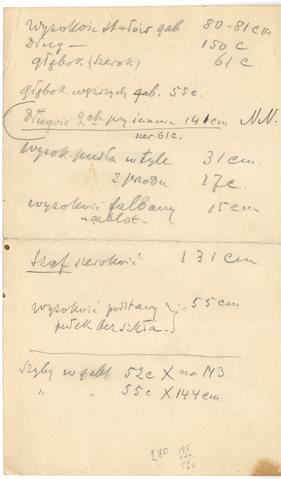 Wysokość stołów gab 80-81 cm
Dług — 150 c
głębok (szerok) 61 c
głębok węższych gab. 55 c.
Długość 2ch przy ścianie 141 cm N.N.
szer. 61 c.
Wysok pudła w tyle 31 cm.
z przodu 17 c.
Wysokość falbany 15 cm
u gablot.
Szaf szerokość 131 cm
wysokość podstawy 55 cm
półek bez szkła
Szyby w gabl. 52 c X na 143.
" " 55 c X 144 cm.
180